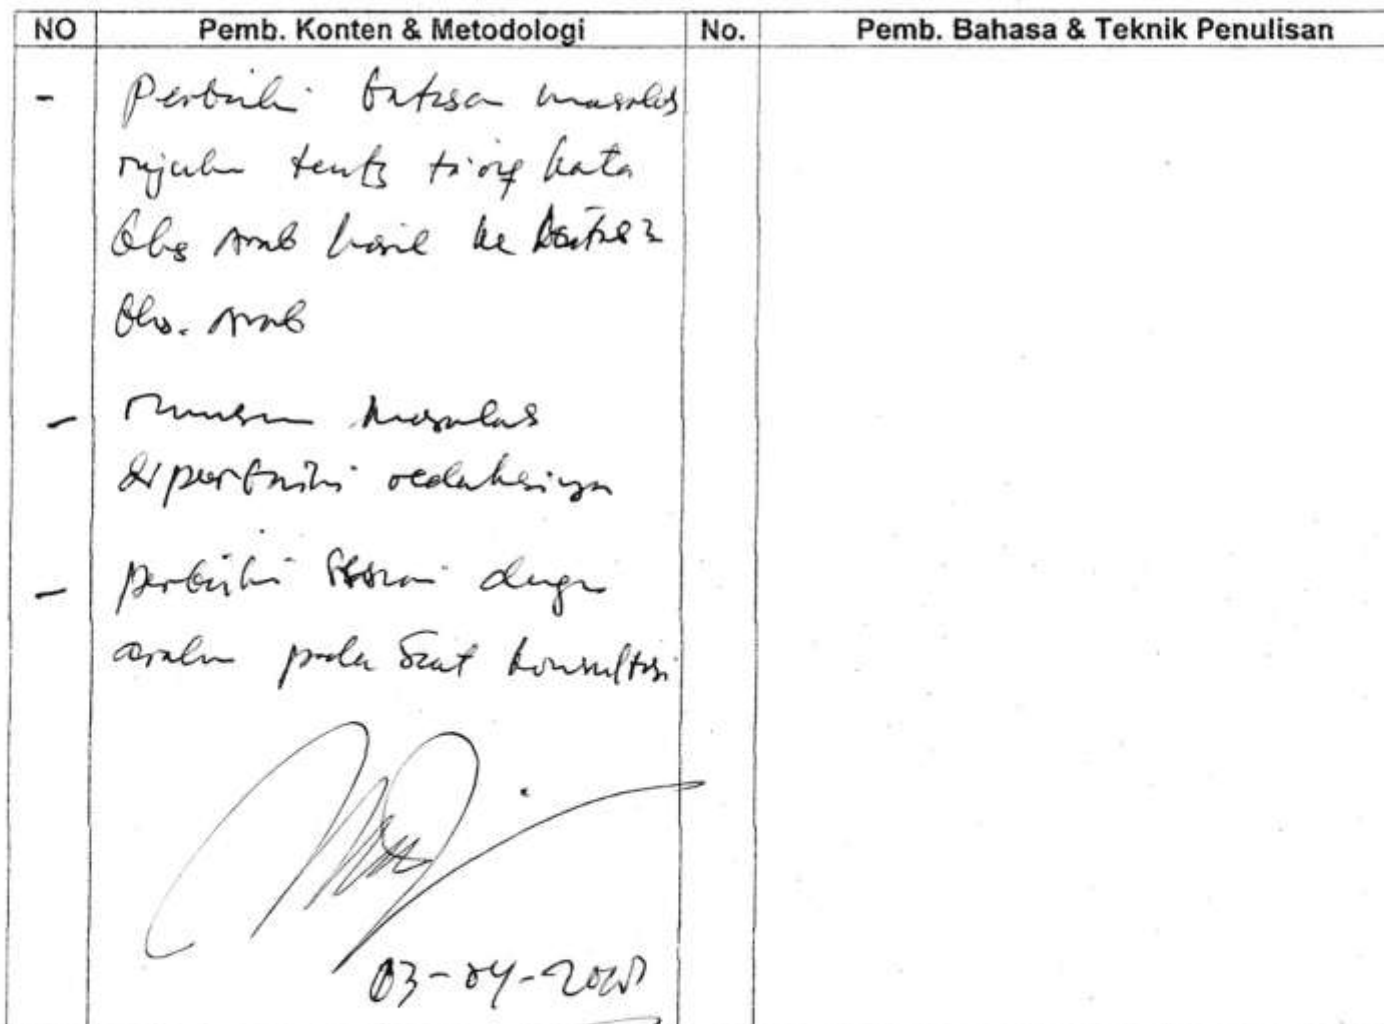 NO Pemb. Konten & Metodologi No. Pemb. Bahasa & Teknik Penulisan
- Perbaiki batasan masalah
rujukan tentg kata
bhs Arab hasil ke
bhs. Arab
- rumusan masalah
diperbaiki redaksinya
- perbaiki sesuai dengan
arahan pada saat konsultasi
03-04-